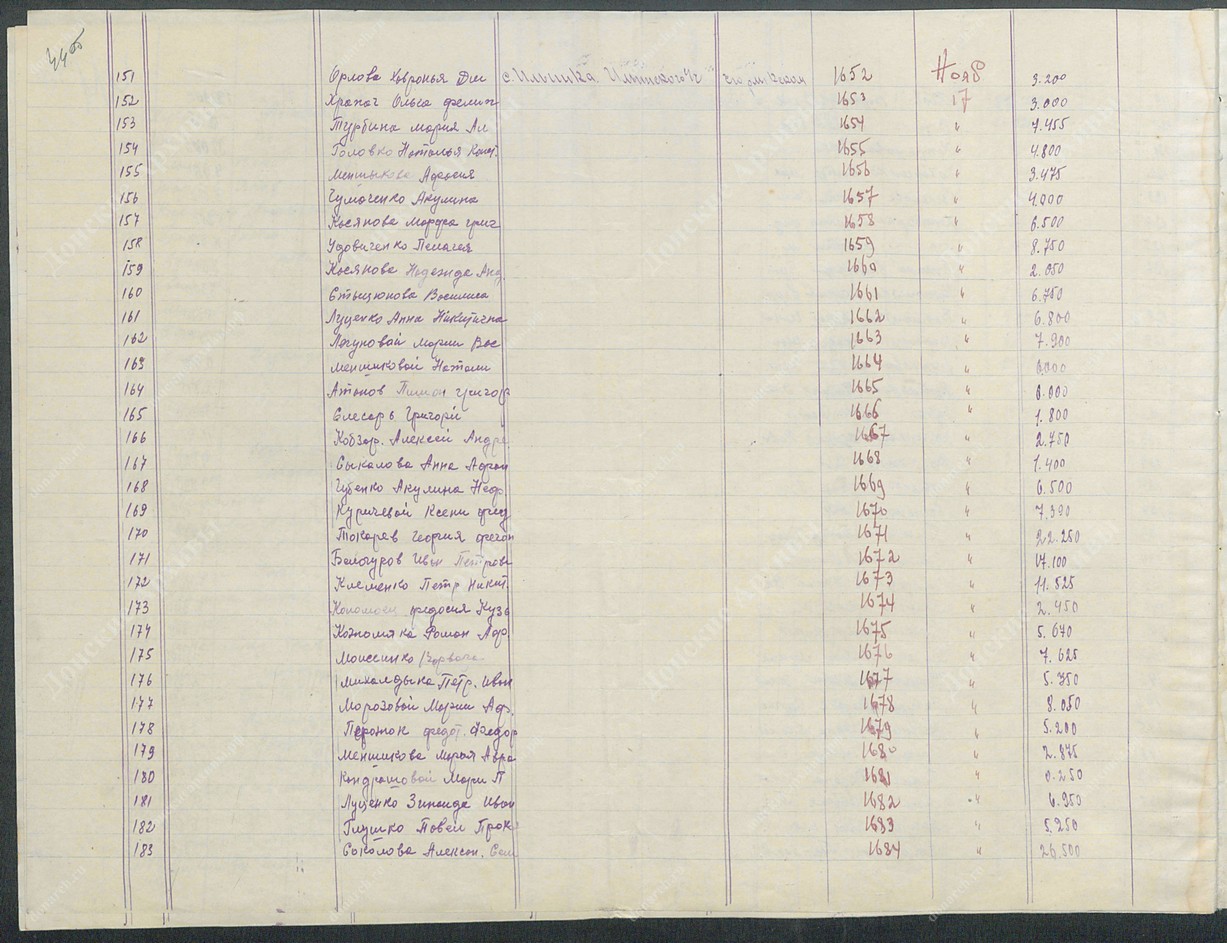 151 Орлова Хавронья Дм с. Ильинка 1652 Нояб 3.200
152 Храпач Ольга филип 1653 17 3.000
153 Турбина мария Ал 1654 " 7.455
154 Головко Наталья Конст. 1655 " 4.800
155 Меньшикова Афросия 1656 " 3.475
156 Чумаченко Акулина 1657 " 4.000
157 Касьянова Марфа григ 1658 " 6.500
158 Удовиченко Пелагея 1659 " 8.750
159 Косянова Надежда Анд. 1660 " 2.050
160 Стыцюнова Василиса 1661 " 6.750
161 Луценко Анна Никитична 1662 " 6.800
162 Логуновой Марии Вас 1663 " 7.900
163 меншиковой Натали 1664 "
164 Атанов григор 1665 "
165 Слесарь Григорй 1666 " 1.800
166 Кобзар. Алексей Андре 1667 " 2.750
167 Сыкалова Анна Афан 1668 " 1.400
168 Губенко Акулина Неф 1669 " 6.500
169 Куричевой Ксени фед 1670 " 7.390
170 Токарев георгия 1671 " 22.250
171 Белогуров Иван Петрови 1672 " 17.100
172 Клеменко Петр Никит. 1673 " 11.525
173 федосия Кузь 1674 " 2.450
174 Кожомяка Роман Аф 1675 " 5.670
175 Моисеенко Варвара 1676 " 7.625
176 Михалдыка Петр. Иван 1677 " 5.350
177 Морозовой Марии Аф. 1678 " 8.050
178 федот. Федор 1679 " 5.200
179 Меншикова Марья Авра 1680 " 2.875
180 Кондрашовой Мари П 1681 "
181 Луценко Зинаида Иван 1682 " 6.950
182 Глушко Павел Прок 1683 " 5.250
183 Соколова Алексан. Сем 1684 " 26.500